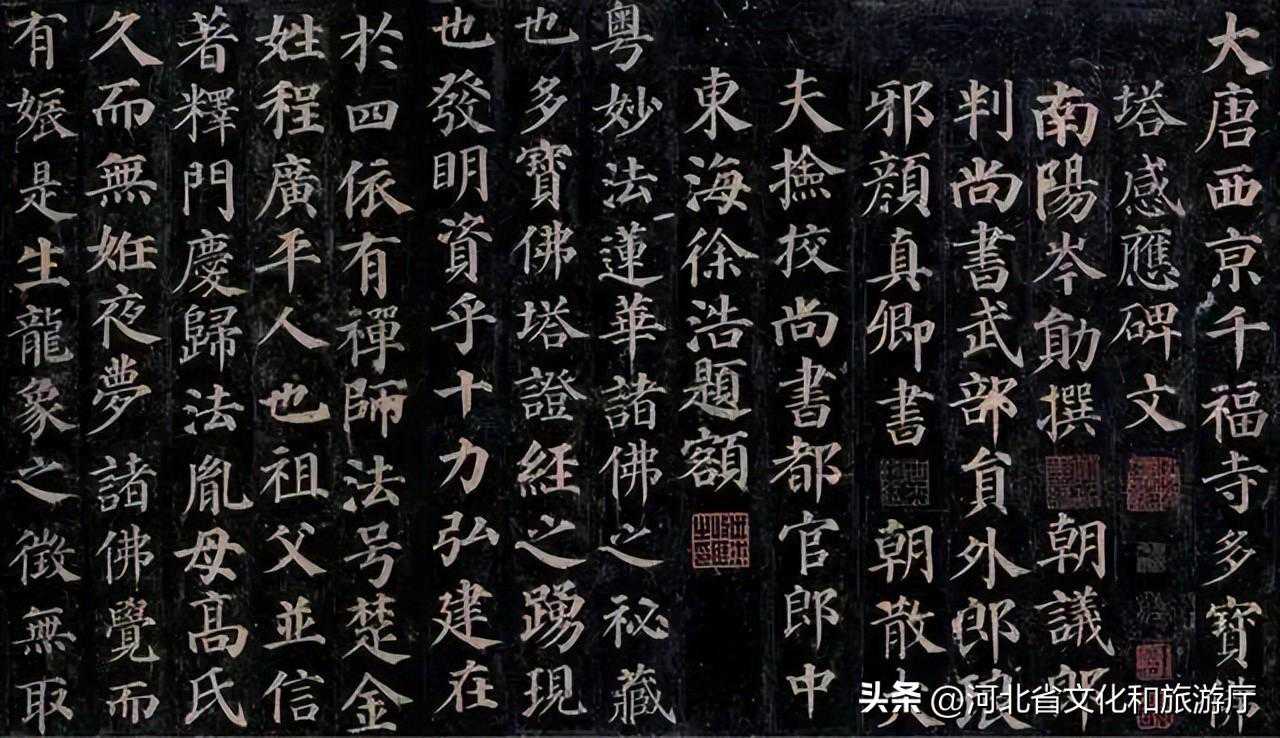 大唐西京千福寺多寳佛
塔感應碑文
南陽岑勛撰 朝議郎
判尚書武部貟外郎琅
邪顏真卿書 朝散大
夫撿校尚書都官郎中
東海徐浩題額
粤妙法蓮華諸佛之祕藏
也多寳佛塔證經之踴現
也發明資乎十力弘建在
於四依有禪師法号楚金
姓程廣平人也祖父並信
著釋門慶歸法胤母高氏
久而無姙夜夢諸佛覺而
有娠是生龍象之徵無取
头条 @河北省文化和旅游厅